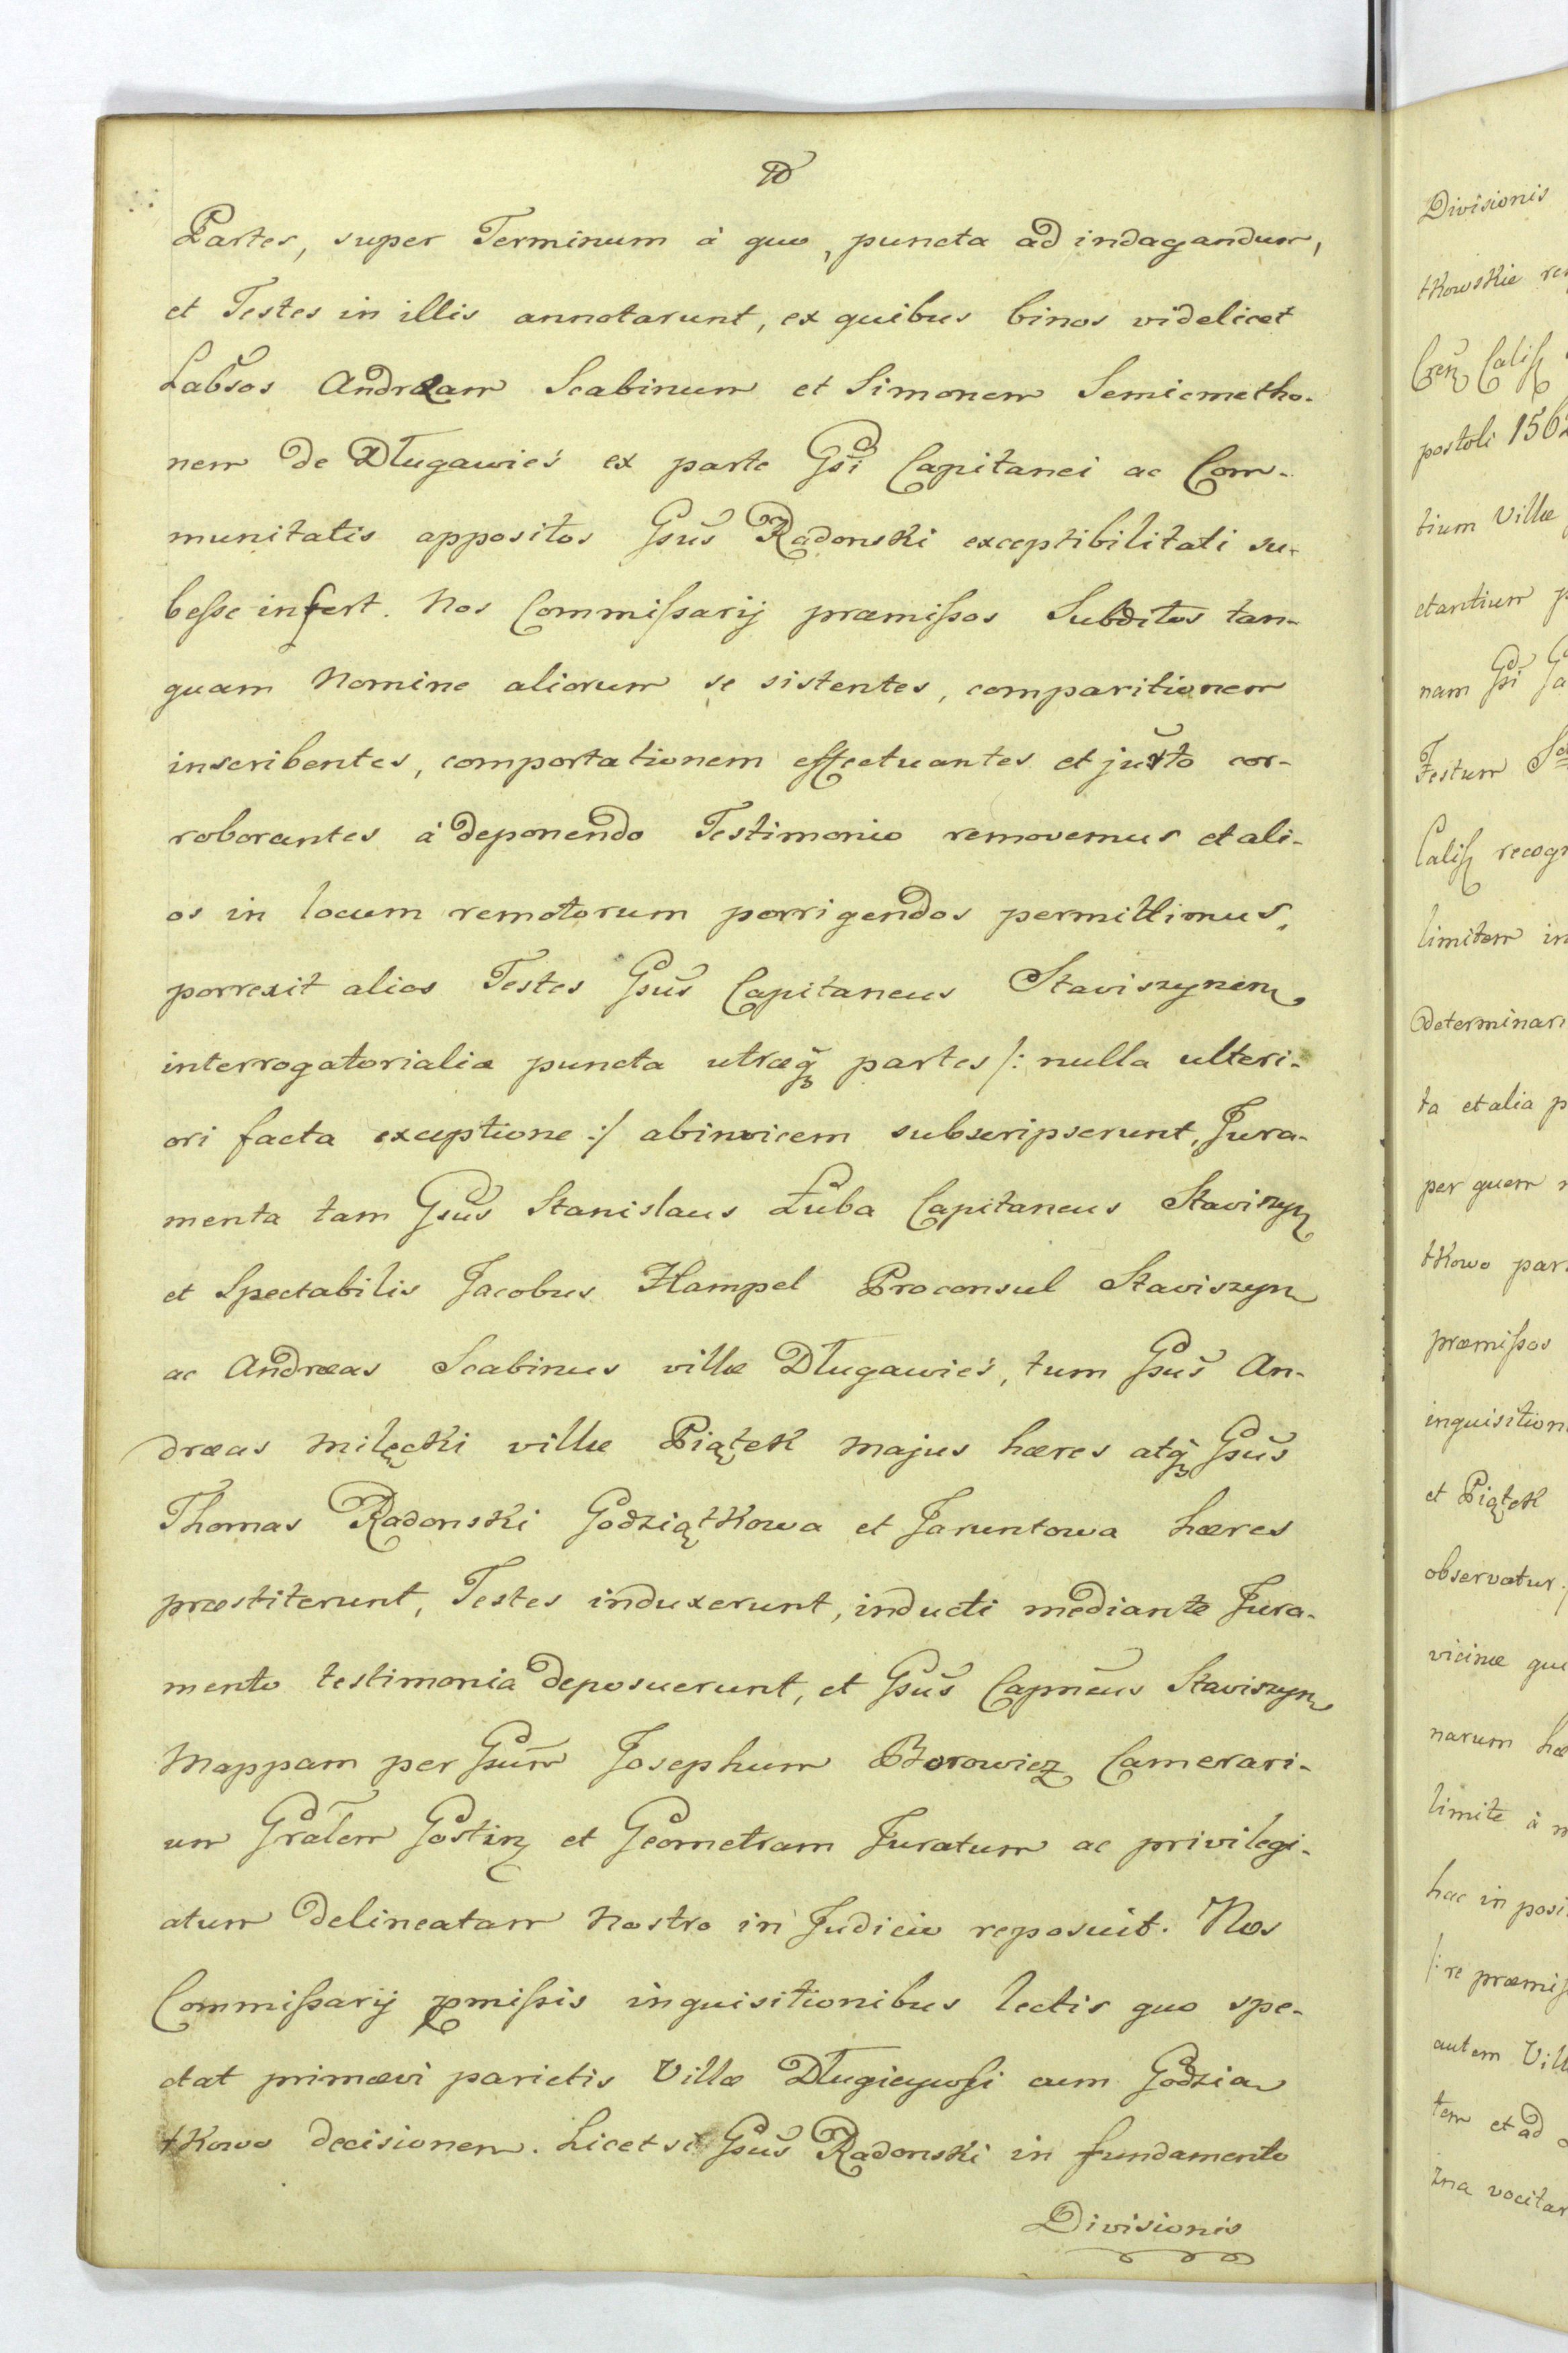 Partes, super Terminum à quo, puncta ad indagandum,
et Testes in illis annotarunt, ex quibus binos videlicet
Labsos Andream Scabinum et Simonem Semicmetho-
nem de Długawieś ex parte Gsi Capitanei ac Com-
munitatis appositos Gsus Radonski exceptibilitati su-
besse infert. Nos Commissarij præmissos Subditos tan-
quam Nomine aliorum se sistentes, comparitionem
inscribentes, comportationem effectuantes et jurto cor-
roborantes à deponendo Testimonio removemus et ali-
os in locum remotorum porrigendos permittimus,
porrexit alios Testes Gsus Capitaneus Staviszynen
interrogatorialia puncta utræq partes /: nulla ulteri-
ori facta exceptione :/ abinvicem subscripserunt, Jura-
menta tam Gsus Stanislaus Łuba Capitaneus Staviszyn
et Spectabilis Jacobus Hampel Proconsul Staviszyn
ac Andreas Scabinus villæ Długawieś, tum Gsus An-
dræas Milęcki villæ Piątek majus hæres atq Gsus
Thomas Radonski Godziątkowa et Jaruntowa hæres
præstiterunt, Testes induxerunt, inducti mediante Jura-
mento testimonia deposuerunt, et Gsus Capneus Staviszyn
Mappam per Gsum Josephum Borowicz Camerari-
um Gralem Gostin et Geometram Juratum ac privilegi-
atum delineatam Nostro in Judicio reposuit. Nos
Commissarij pmissis inquisitionibus lectis quo spe-
ctat primævi parietis Villæ Długieywsi cum Godzia
tkowo decisionem. Licet si Gsus Radonski in fundamento
Divisionis
Divisionis
tkowskie
Cren Calis
postoli 1562
tium Villæ
etantium
nam Gsi
Festum
Calis recogn
limitem in
determinari
ta et alia p
per quem
tkowo par
præmissos
inquisition
et Piątek
observatur
vicinæ que
narum hæ
limite à
hac in posi
/: re præmis
autem Vill
tem et ad
zna vocitar